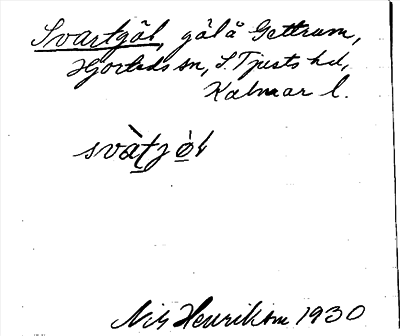 Svartgöl, göl å Gettrum,
Hjorteds sn, S. Tjusts hd,
Kalmar l.
svàtjò̀l
Nils Henrikson 1930